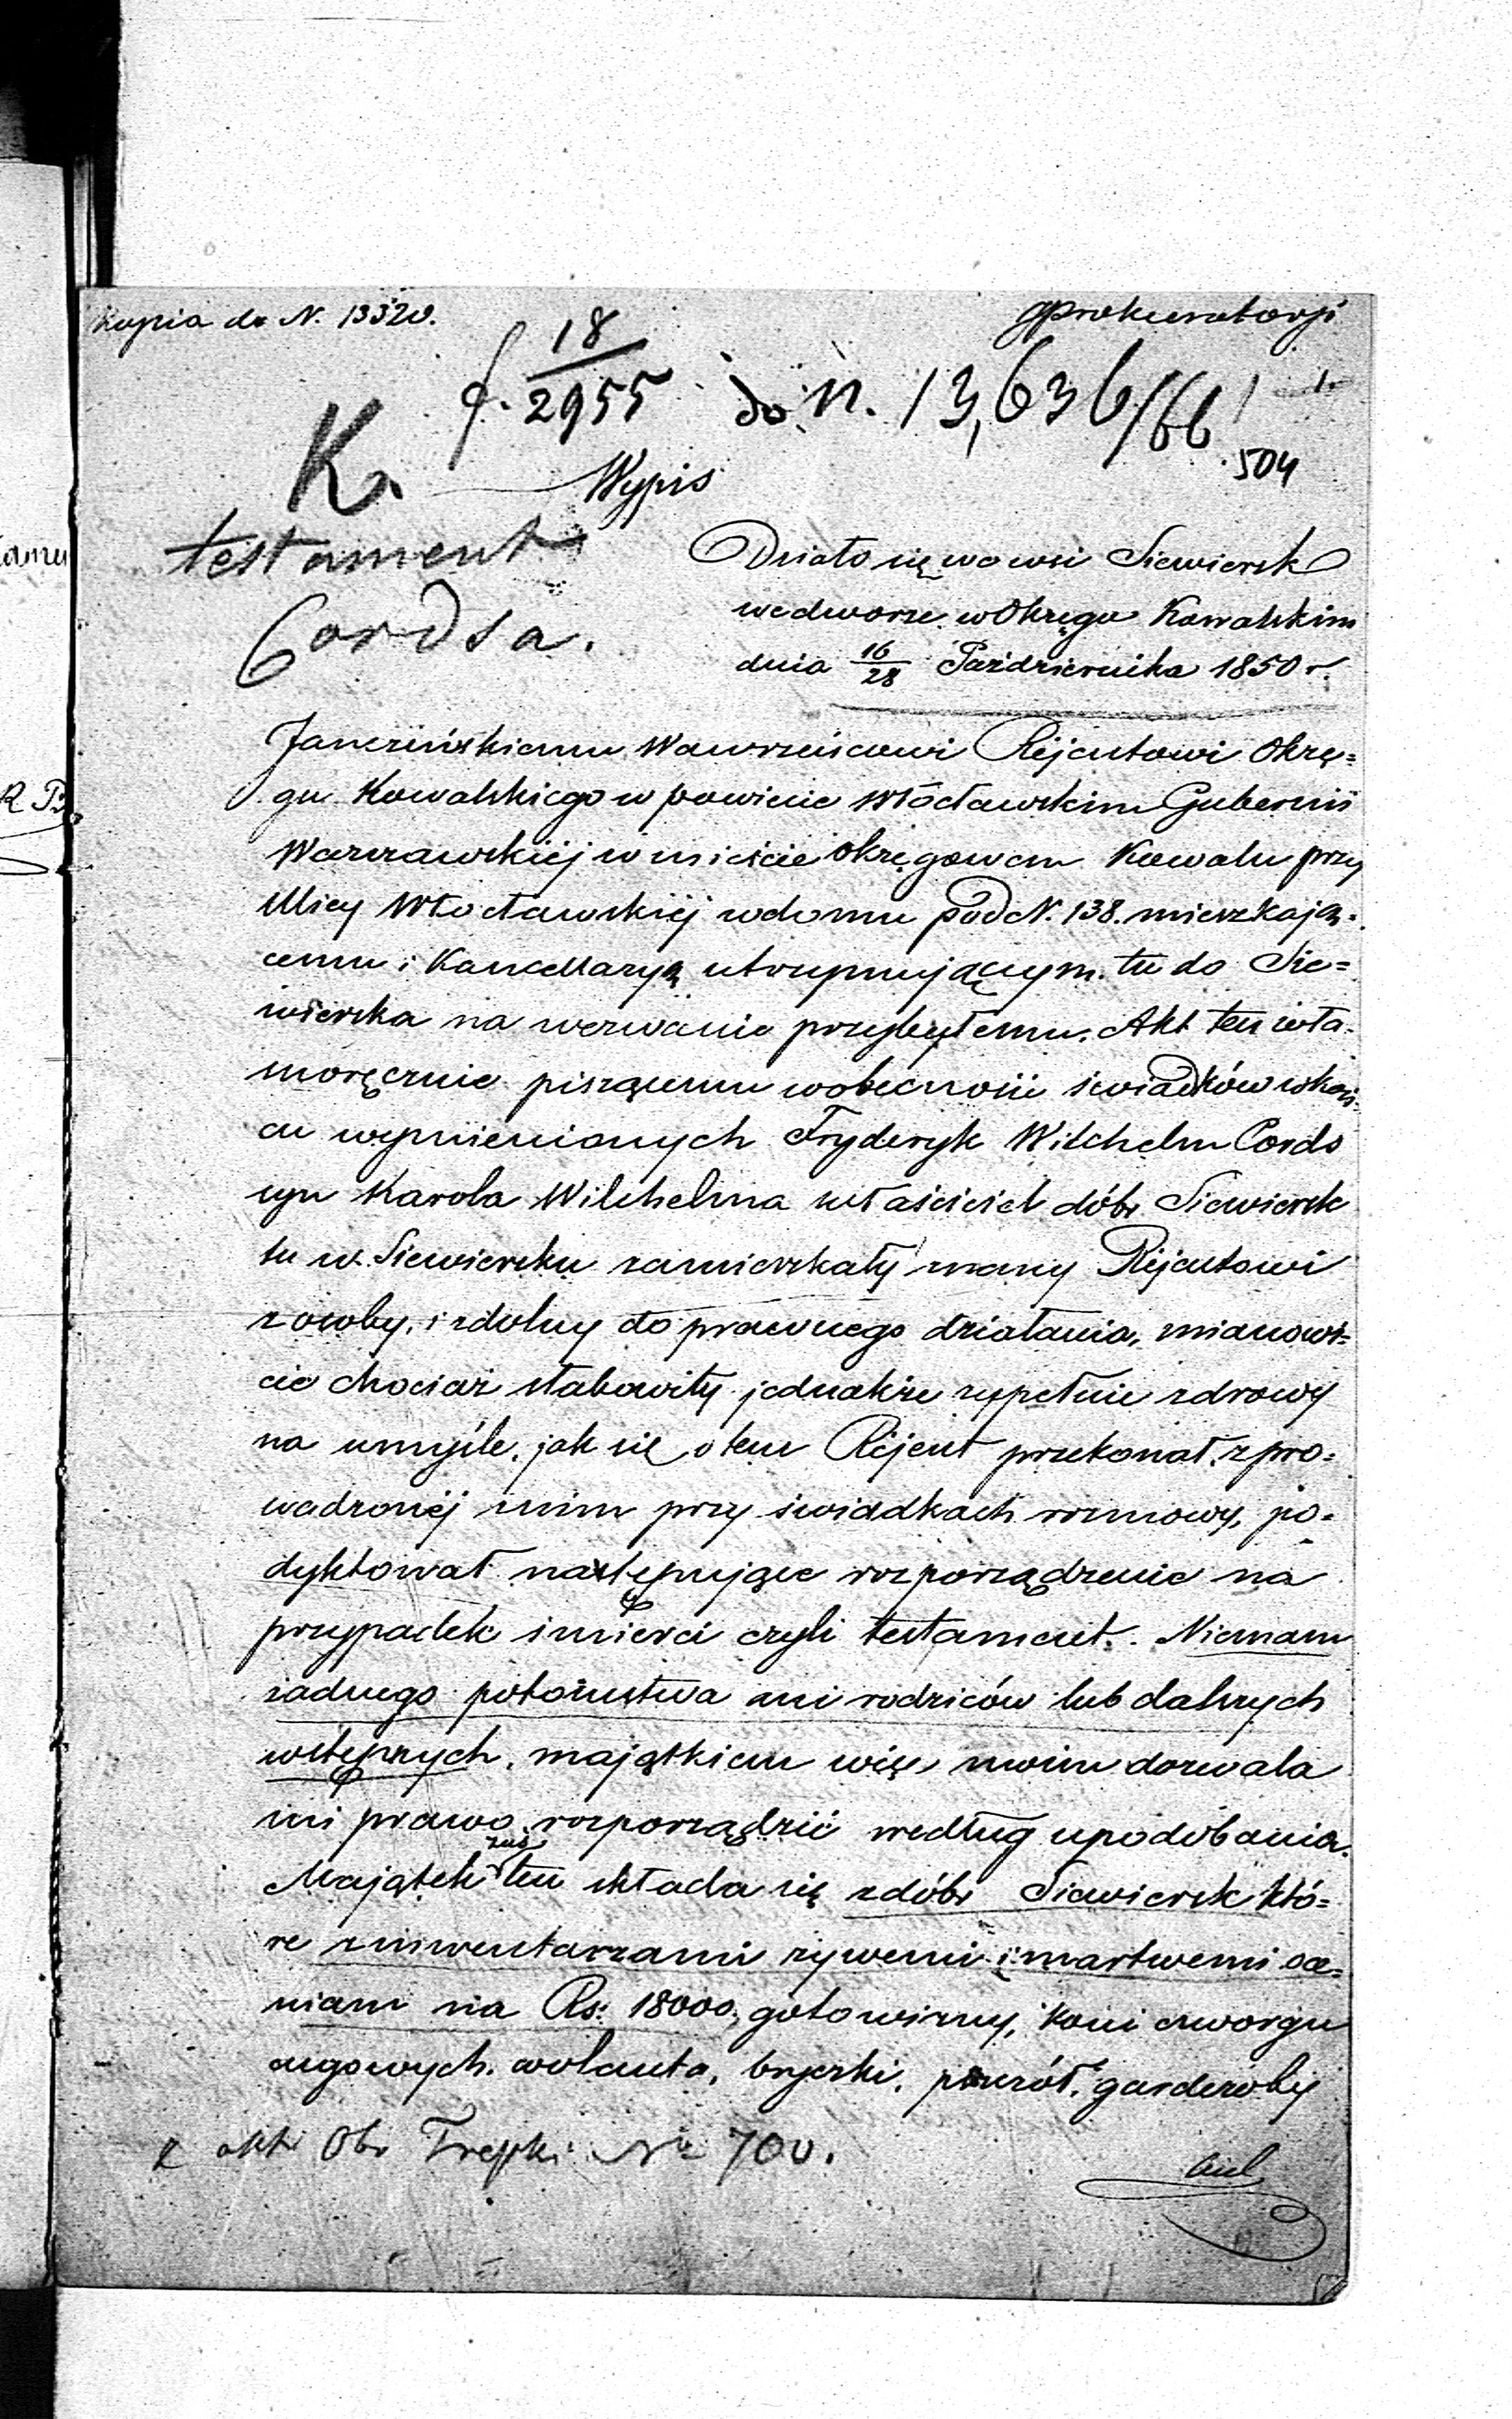 Kopia do N. 13320.
Prokuratorji
f. 18/2955 do N. 13,636/66
504
K.
Wypis
testament
Cordsa.
Działo się we wsi Siewiersk
we dworze w Okręgu Kowalskim
dnia 16/28 Października 1850 r.
Janczińskiemu Wawrzeńcowi Rejentowi Okrę=
gu Kowalskiego w powiecie Włócławskim Gubernii
Warszawskiéj w mieście Okręgowem Kowalu przy
Ulicy Włocławskiéj w domu pod N. 138. mieszkają=
cemu i Kancellaryą utrzymującym. tu do Sie=
wierska na wezwanie przybyłemu. Akt ten wła=
snoręcznie piszącemu wobecności świadków wkoń=
cu wymienionych Fryderyk Wilchelm Cords
syn Karola Wilchelma właściciel dóbr Siewiersk
tu w Siewiersku zamieszkały znany Rejentowi
z osoby, i zdolny do prawnego działania, mianowi=
cie chociaż słabowity jednakże zupełnie zdrowy
na umyśle, jak się o tem Rejent przekonał, z pro=
wadzonéj z nim przy świadkach rozmowy, po=
dyktował następujące rozporządzenie na
przypadek śmierci czyli testament. Niemam
żadnego potomstwa ani rodziców lub dalszych
wstępnych, majątkiem więc moim dozwala
mi prawo rozporządzić według upodobania.
Majątek zaś ten składa się z dóbr Siewiersk któ=
re z inwentarzami żywemi i martwemi oce=
niam na Rs: 18000, gotowizny, koni cworgu
cugowych. wolanta, bryczki, garderoby
z akt Obr Trepki No 700.